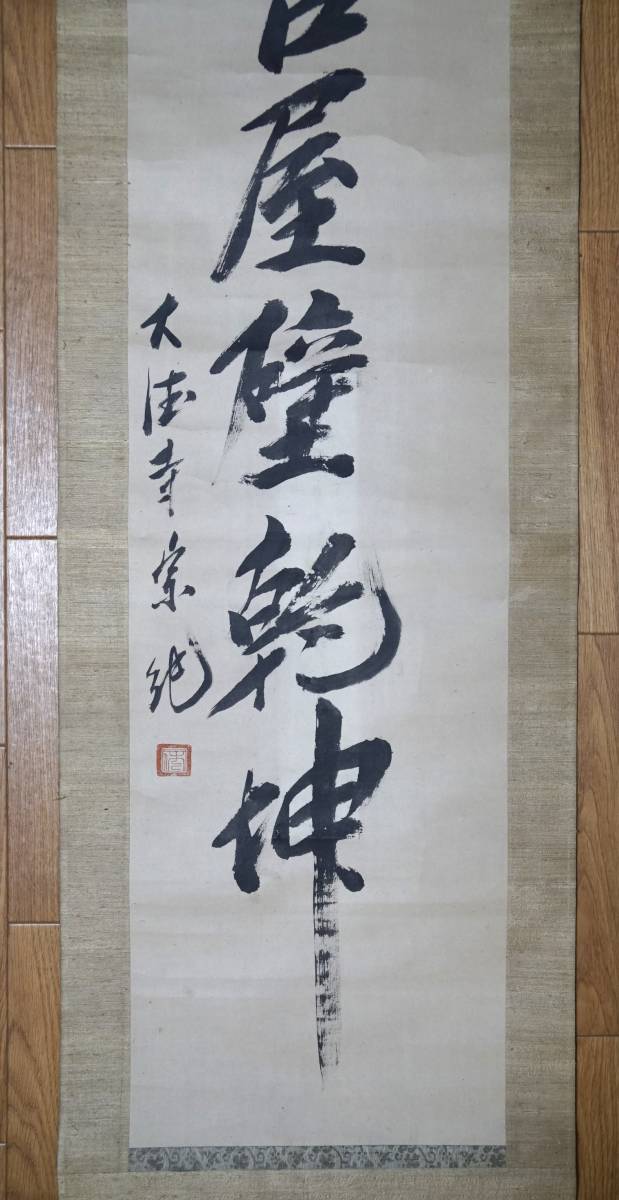 屋壁乾坤
大徳寺宗純